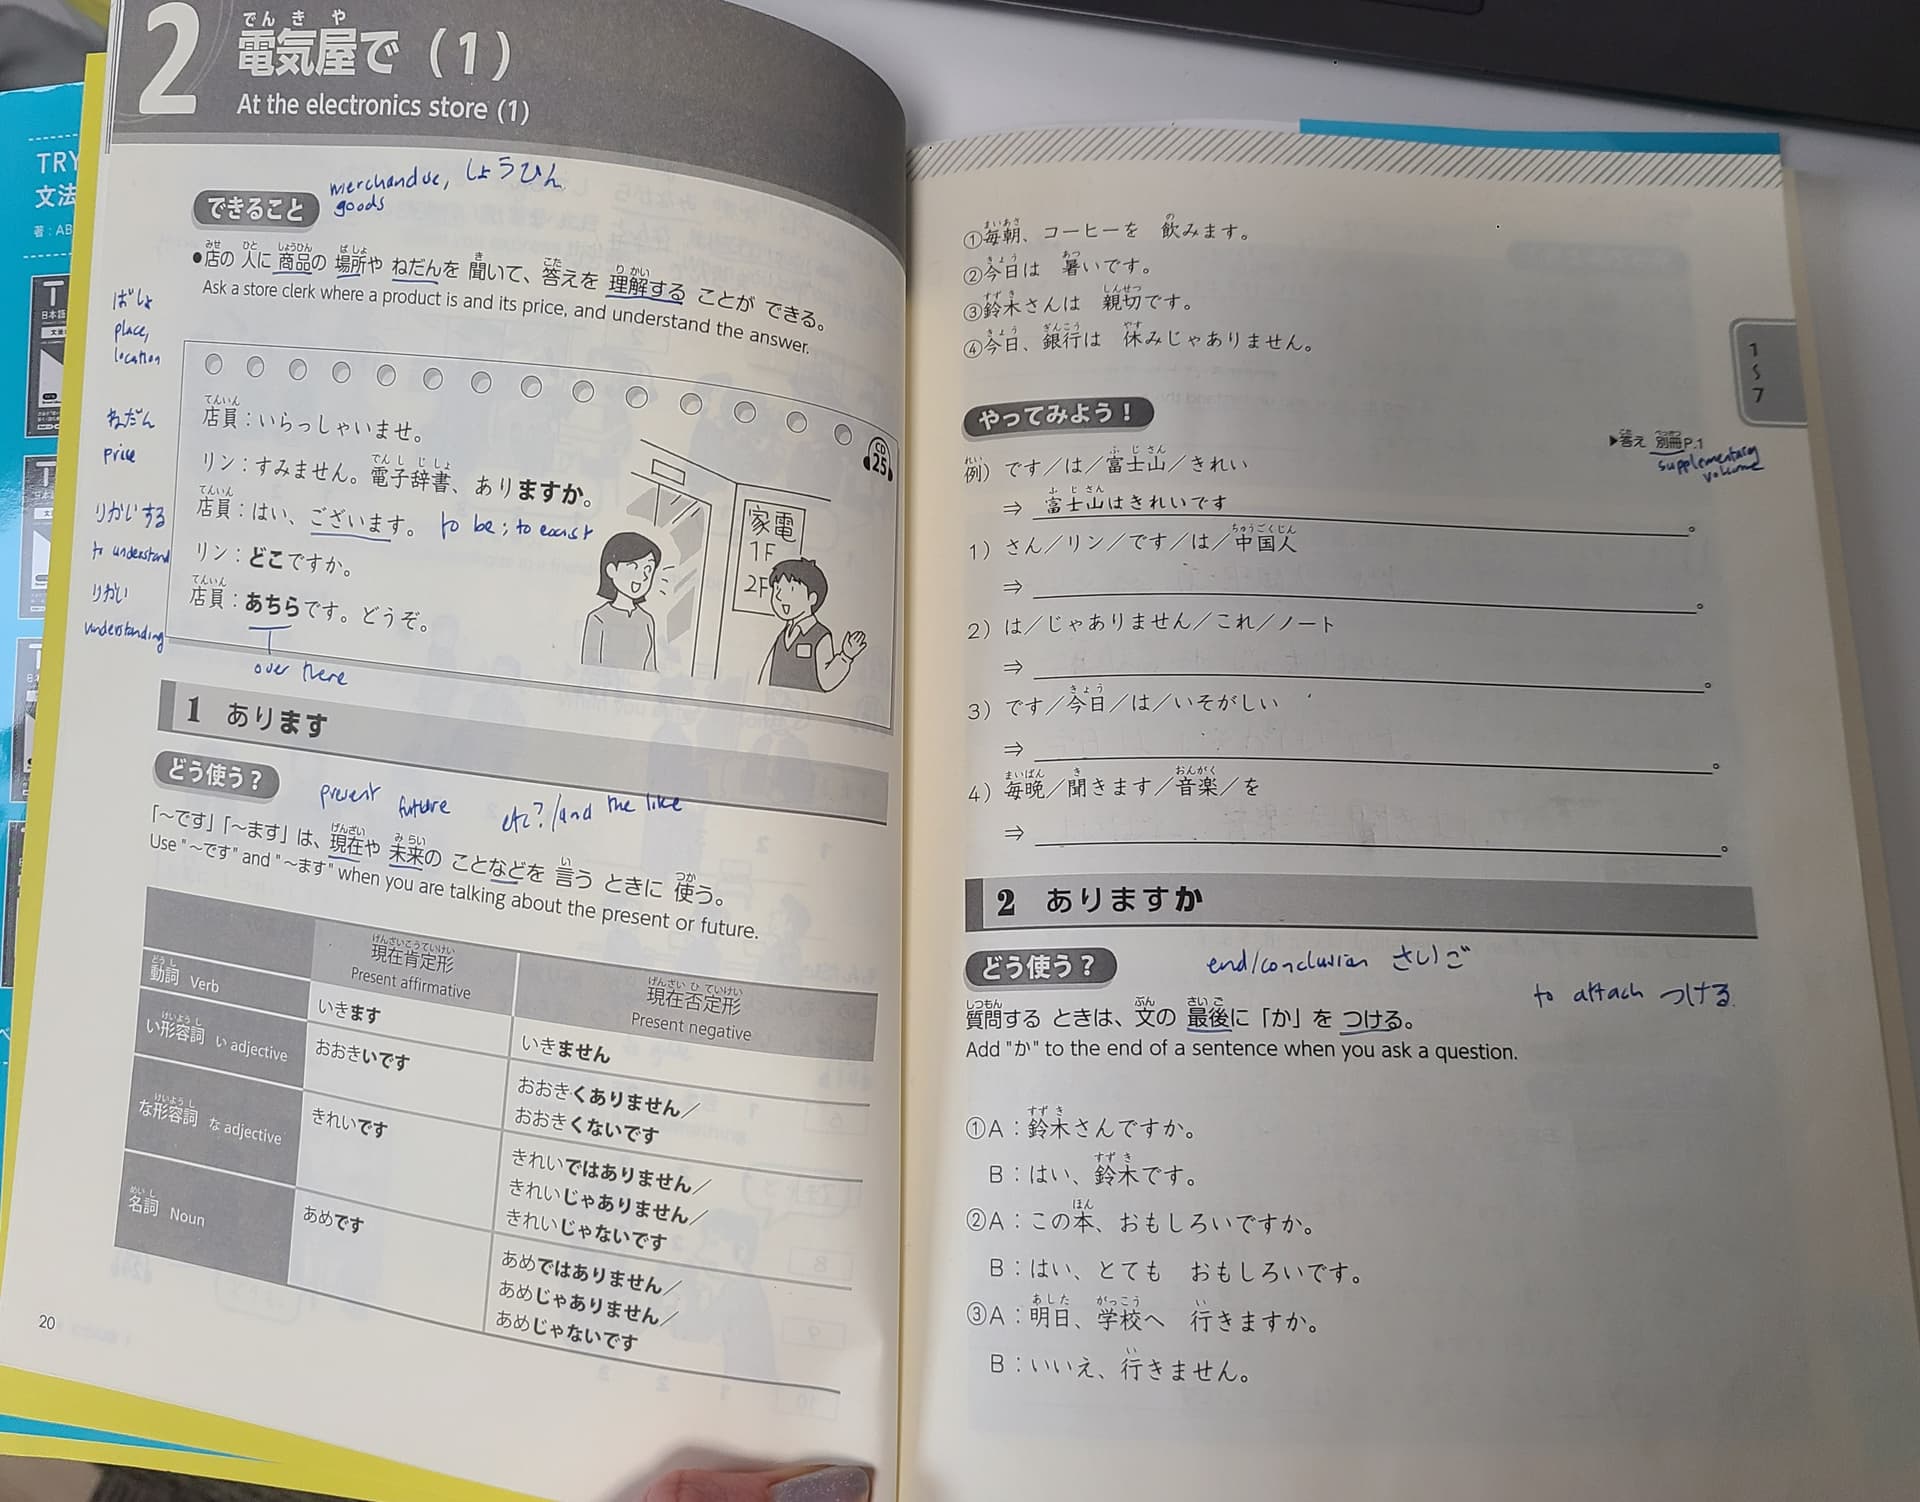 TRY
文法
著：AB
2
でんきや
電気屋で（1）
At the electronics store (1)
merchandise, しょうひん
goods
できること
みせ ひと しょうひん ばしょ き こた りかい
●店の 人に 商品の 場所や ねだんを 聞いて、答えを 理解する ことが できる。
Ask a store clerk where a product is and its price, and understand the answer.
ばしょ
place,
location
ねだん
price
りかいする
to understand
りかい
understanding
CD
25
てんいん
店員：いらっしゃいませ。
でんしじしょ
リン：すみません。電子辞書、ありますか。
てんいん
店員：はい、ございます。 to be; to exist
リン：どこですか。
てんいん
店員：あちらです。どうぞ。
over there
家電
1F
2F
1 あります
どう使う？
present future etc?/and the like
げんざい みらい い つか
「～です」「～ます」は、現在や 未来の ことなどを 言う ときに 使う。
Use "～です" and "～ます" when you are talking about the present or future.
げんざいこうていけい
現在肯定形
Present affirmative
げんざいひていけい
現在否定形
Present negative
どうし
動詞 Verb
いきます
いきません
けいようし
い形容詞 い adjective
おおきいです
おおきくありません／
おおきくないです
けいようし
な形容詞 な adjective
きれいです
きれいではありません／
きれいじゃありません／
きれいじゃないです
めいし
名詞 Noun
あめです
あめではありません／
あめじゃありません／
あめじゃないです
20
まいあさ の
①毎朝、コーヒーを 飲みます。
きょう あつ
②今日は 暑いです。
すずき しんせつ
③鈴木さんは 親切です。
きょう ぎんこう やす
④今日、銀行は 休みじゃありません。
1
〜
7
やってみよう！
こた べっさつ
▶答え 別冊P.1
supplementary
volume
れい ふじさん
例）です／は／富士山／きれい
ふじさん
⇒ 富士山はきれいです。
ちゅうごくじん
1）さん／リン／です／は／中国人
⇒ 。
2）は／じゃありません／これ／ノート
⇒ 。
きょう
3）です／今日／は／いそがしい
⇒ 。
まいばん き おんがく
4）毎晩／聞きます／音楽／を
⇒ 。
2 ありますか
どう使う？
end/conclusion さいご
to attach つける
しつもん ぶん さいご
質問する ときは、文の 最後に「か」を つける。
Add "か" to the end of a sentence when you ask a question.
すずき
①A：鈴木さんですか。
すずき
B：はい、鈴木です。
ほん
②A：この本、おもしろいですか。
B：はい、とても おもしろいです。
あした がっこう い
③A：明日、学校へ 行きますか。
い
B：いいえ、行きません。